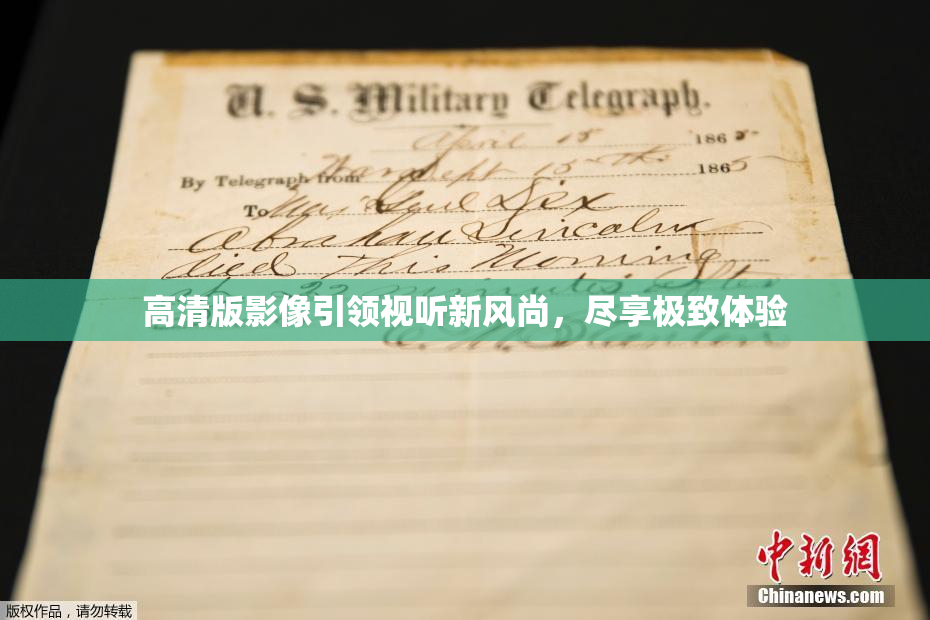 U. S. Military Telegraph.
April 15 1865
By Telegraph from War Dept 15th 1865
To Maj Genl Dix
Abraham Lincoln
died This Morning
22 minutes after
高清版影像引领视听新风尚，尽享极致体验
E. M. Stanton
中新网
Chinanews.com
版权作品，请勿转载